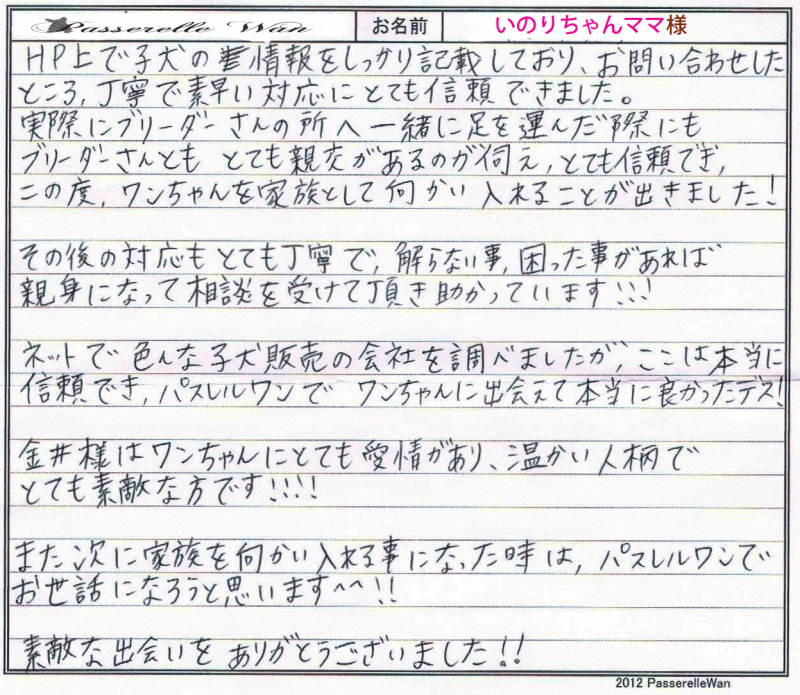 Passerelle Wan お名前 いのりちゃんママ様
HP上で子犬の情報をしっかり記載しており、お問い合わせした
ところ、丁寧で素早い対応にとても信頼できました。
実際にブリーダーさんの所へ一緒に足を運んだ際にも
ブリーダーさんとも とても親交があるのが伺え、とても信頼でき、
この度、ワンちゃんを家族として向かい入れることが出きました!
その後の対応もとても丁寧で、解らない事、困った事があれば
親身になって相談を受けて頂き助かっています!!!
ネットで色んな子犬販売の会社を調べましたが、ここは本当に
信頼でき、パスレルワンで ワンちゃんに出会えて本当に良かったデス!
金井様はワンちゃんにとても愛情があり、温かい人柄で
とても素敵な方です!!!!
また次に家族を向かい入れる事になった時は、パスレルワンで
お世話になろうと思います^^!!
素敵な出会いを ありがとうございました!!
2012 PasserelleWan